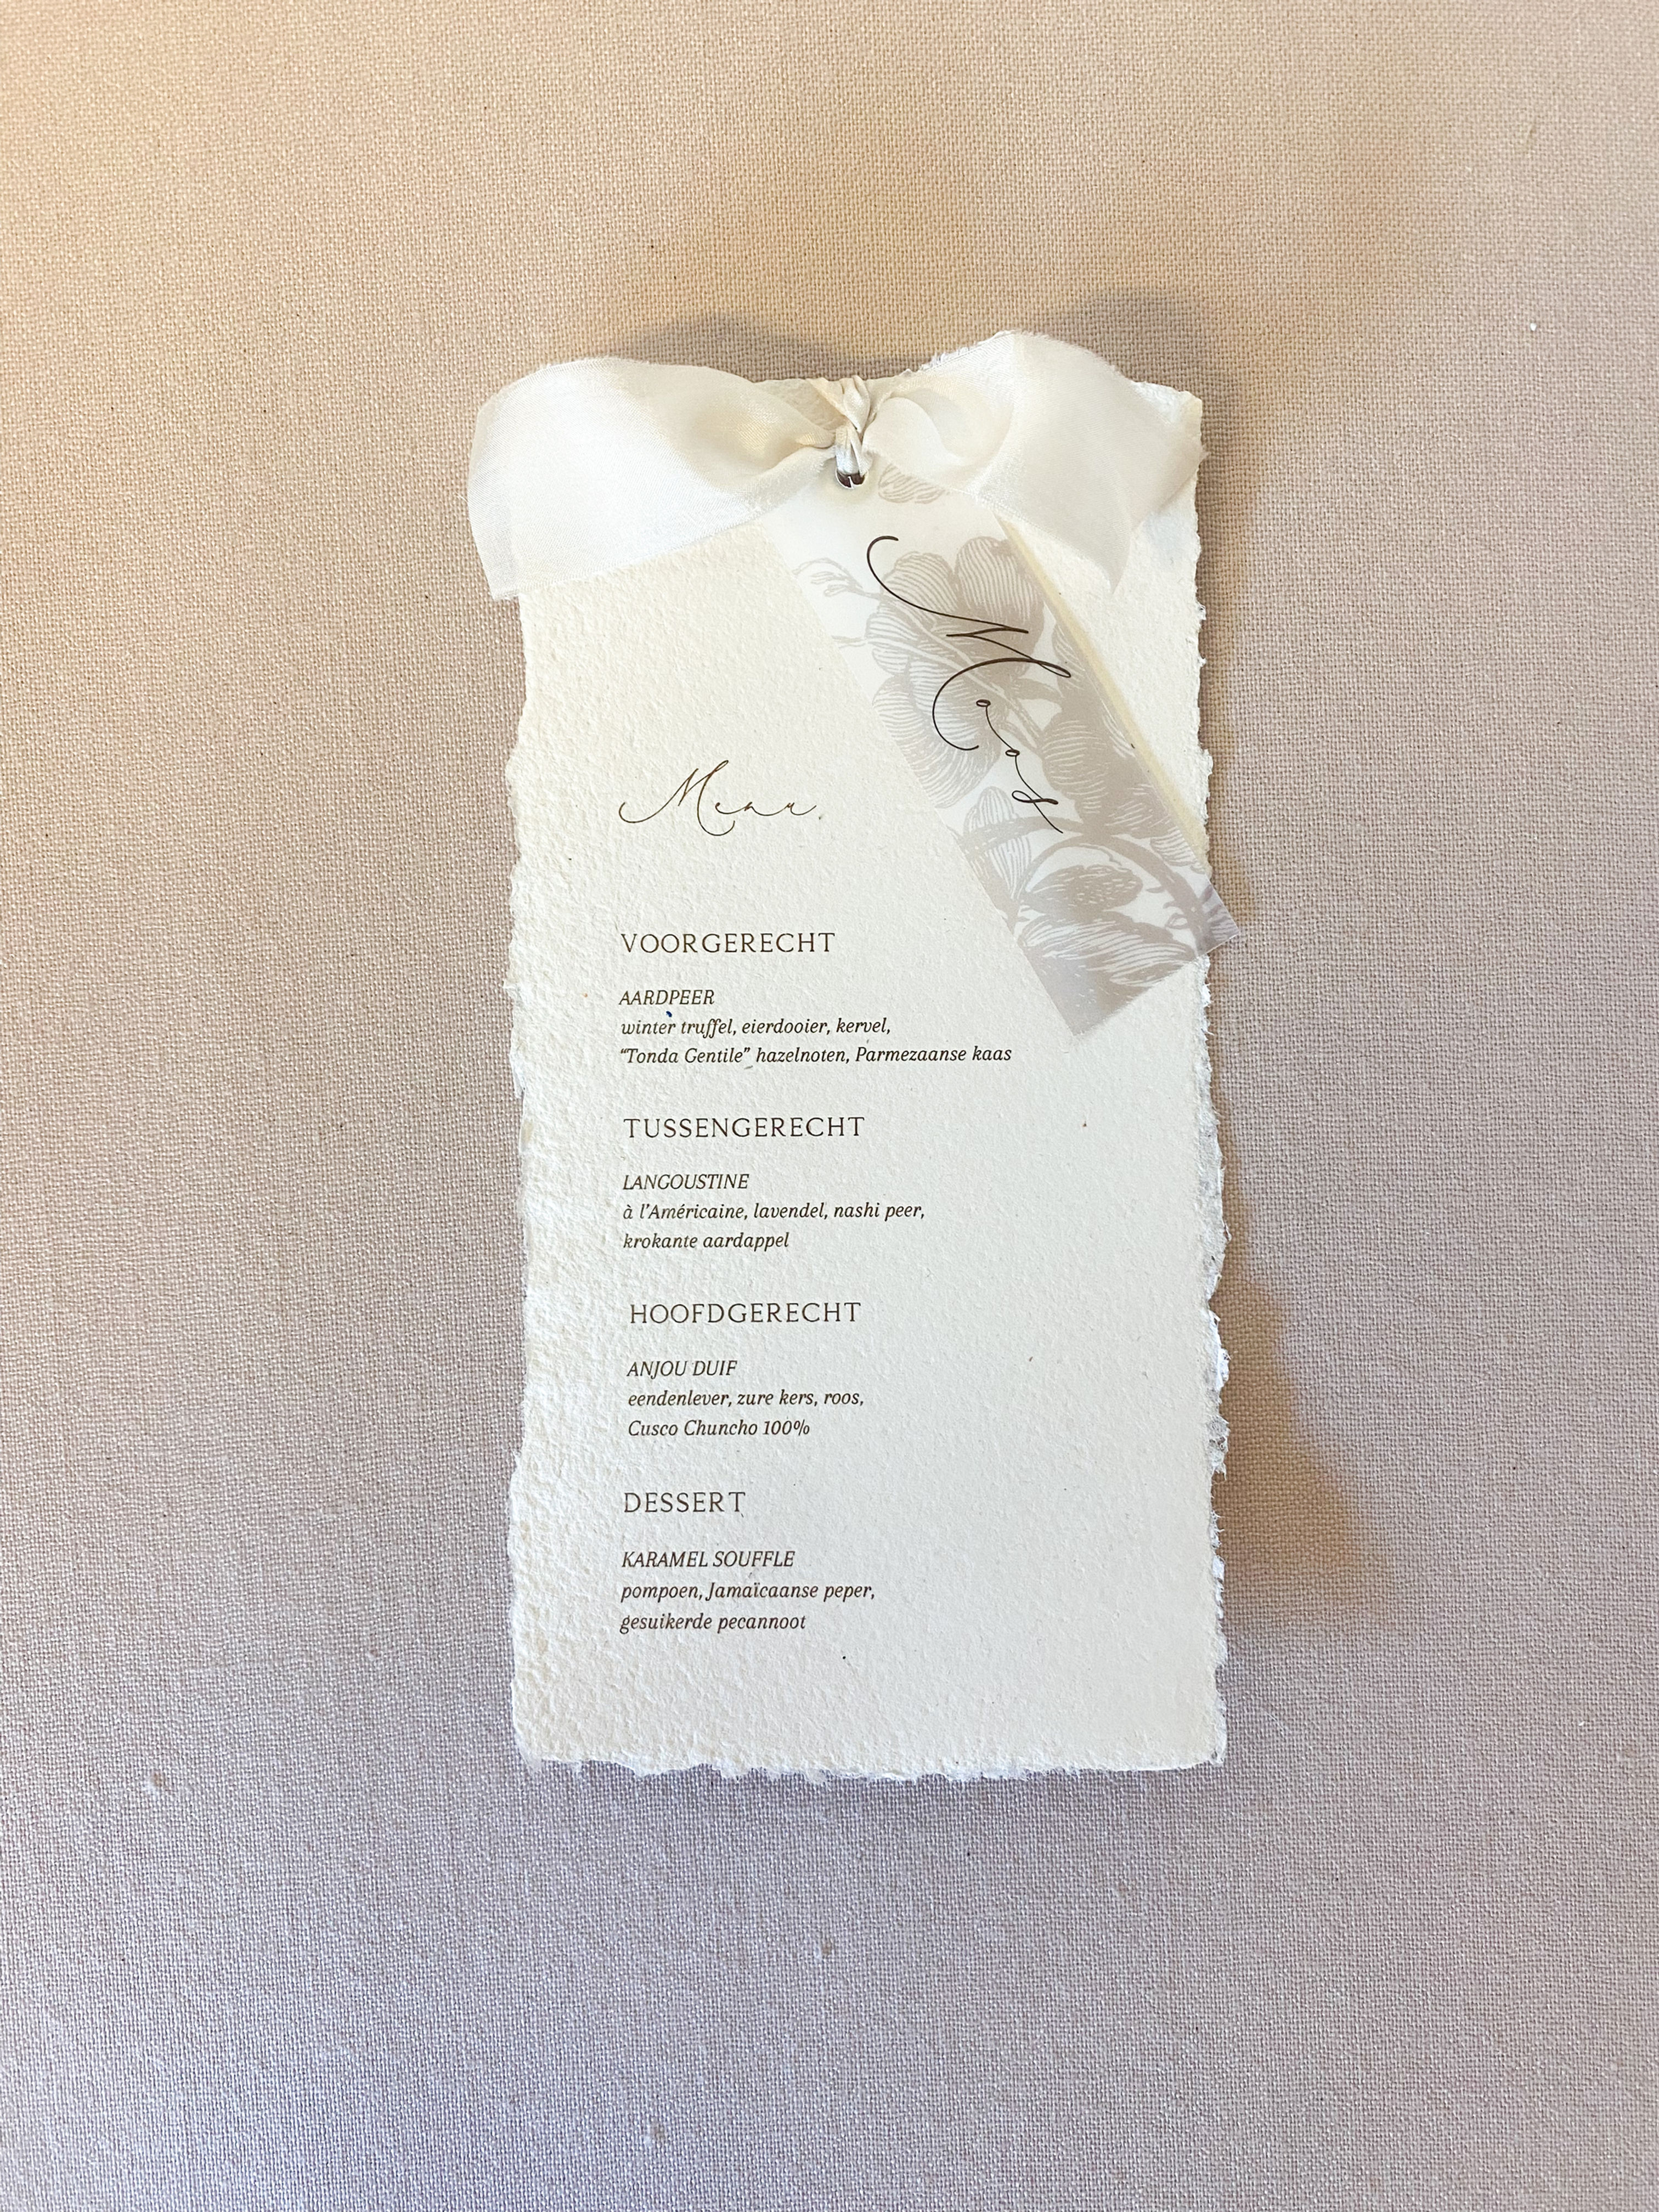 Maas
Menu
VOORGERECHT
AARDPEER
winter truffel, eierdooier, kervel,
“Tonda Gentile” hazelnoten, Parmezaanse kaas
TUSSENGERECHT
LANGOUSTINE
à l’Américaine, lavendel, nashi peer,
krokante aardappel
HOOFDGERECHT
ANJOU DUIF
eendenlever, zure kers, roos,
Cusco Chuncho 100%
DESSERT
KARAMEL SOUFFLE
pompoen, Jamaïcaanse peper,
gesuikerde pecannoot